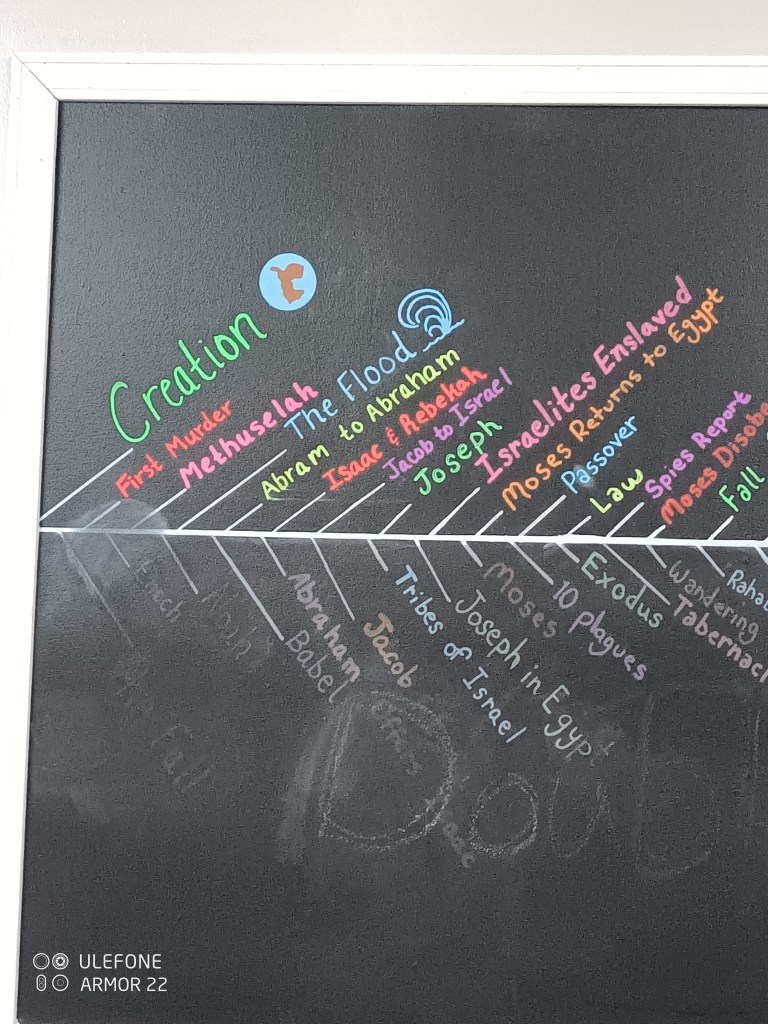 Creation
First Murder
Methuselah
The Flood
Abram to Abraham
Isaac & Rebekah
Jacob to Israel
Joseph
Israelites Enslaved
Moses Returns to Egypt
Passover
Law
Spies Report
Moses Disobe
Fall
Fall
Enoch
Noah
Babel
Abraham
Jacob
Tribes of Israel
Joseph in Egypt
Moses
10 Plagues
Exodus
Tabernacl
Wandering
Rahab
Doub
ULEFONE
ARMOR 22